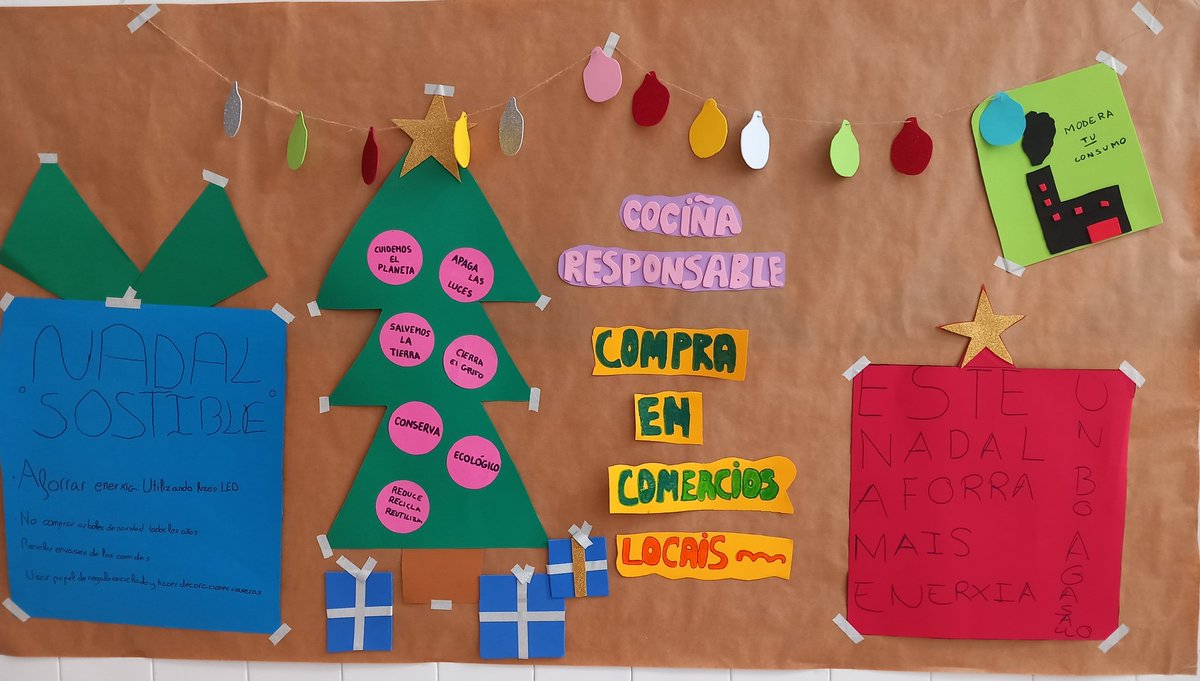 NADAL
"SOSTIBLE"
· Aforrar enerxia Utilizando luces LED
· No comprar arboles de navidad todos los años
· Reciclar envases de las comidas
· Usar papel de regalo reciclado y hacer decoraciones caseras
CUIDEMOS
EL
PLANETA
APAGA
LAS
LUCES
SALVEMOS
LA
TIERRA
CIERRA
El GRIFO
CONSERVA
ECOLÓGICO
REDUCE
RECICLA
REUTILIZA
COCIÑA
RESPONSABLE
COMPRA
EN
COMERCIOS
LOCAIS
MODERA
TU
CONSUMO
ESTE
NADAL
AFORRA
MAIS
ENERXIA
UN BO AGASALLO